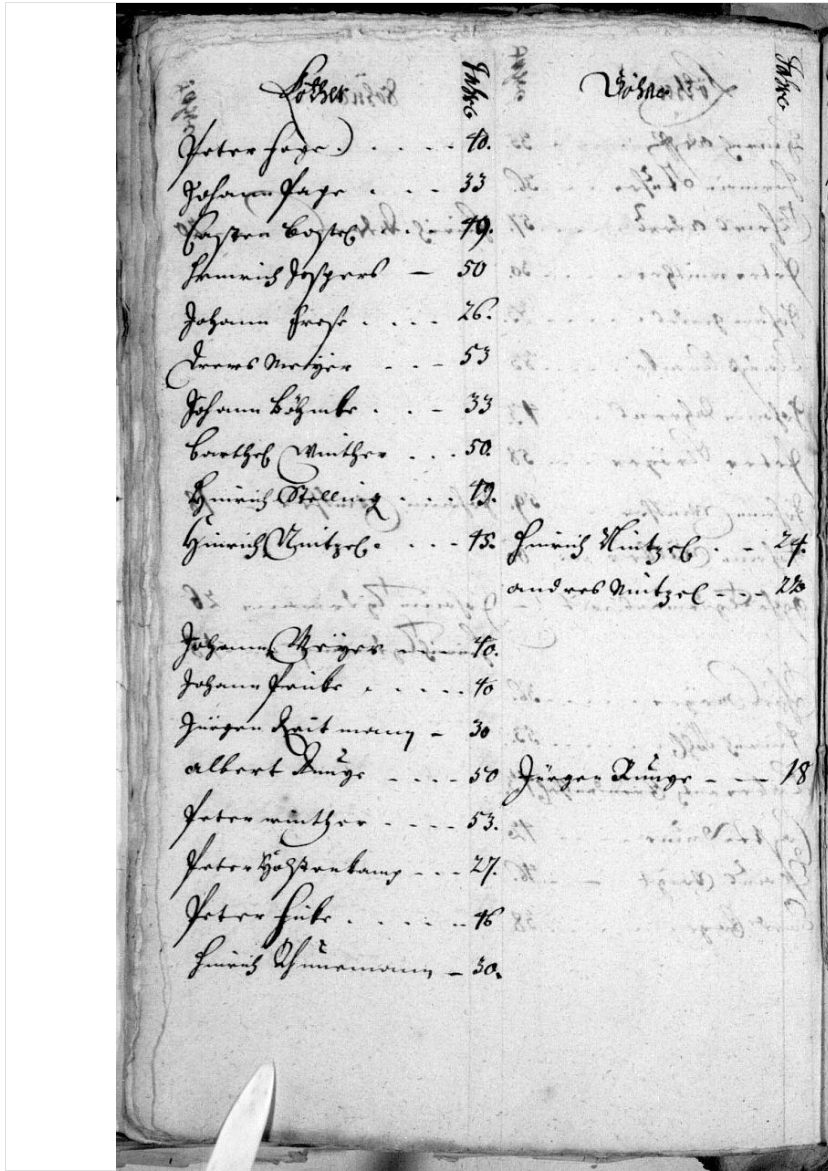 Köther Jahre Söhne Jahre
Peter Hege 40.
Johann Page 33
Casten Bostel 49.
Heinrich Jespers 50
Johann Frese 26.
Drews Meyer 53
Johann Böhmke 33
Barthel Winther 50.
Hinrich Stelling 49.
Hinrich Nintzel 45. Hinrich Nintzel 24.
Andres Nintzel 22
Johann Meyer 40.
Johann 40
Jürgen Reitmann 30
Albert Runge 50 Jürgen Runge 18
Peter Winther 53.
Peter Holstenkamp 27.
Peter 46
Hinrich Thünemann 30.